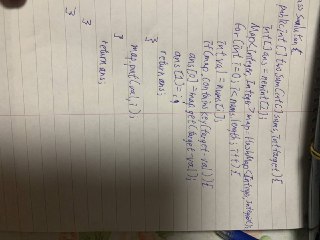 class Solution {
public int[] twoSum(int[] nums, int target) {
int[] ans = new int[2];
Map<Integer, Integer> map = HashMap<Integer, Integer>();
for (int i=0; i<nums.length; i++) {
int val = nums[i];
if (map.containsKey(target-val)) {
ans[0] = map.get(target-val);
ans[1] = i;
return ans;
}
map.put(val, i);
}
return ans;
}
}